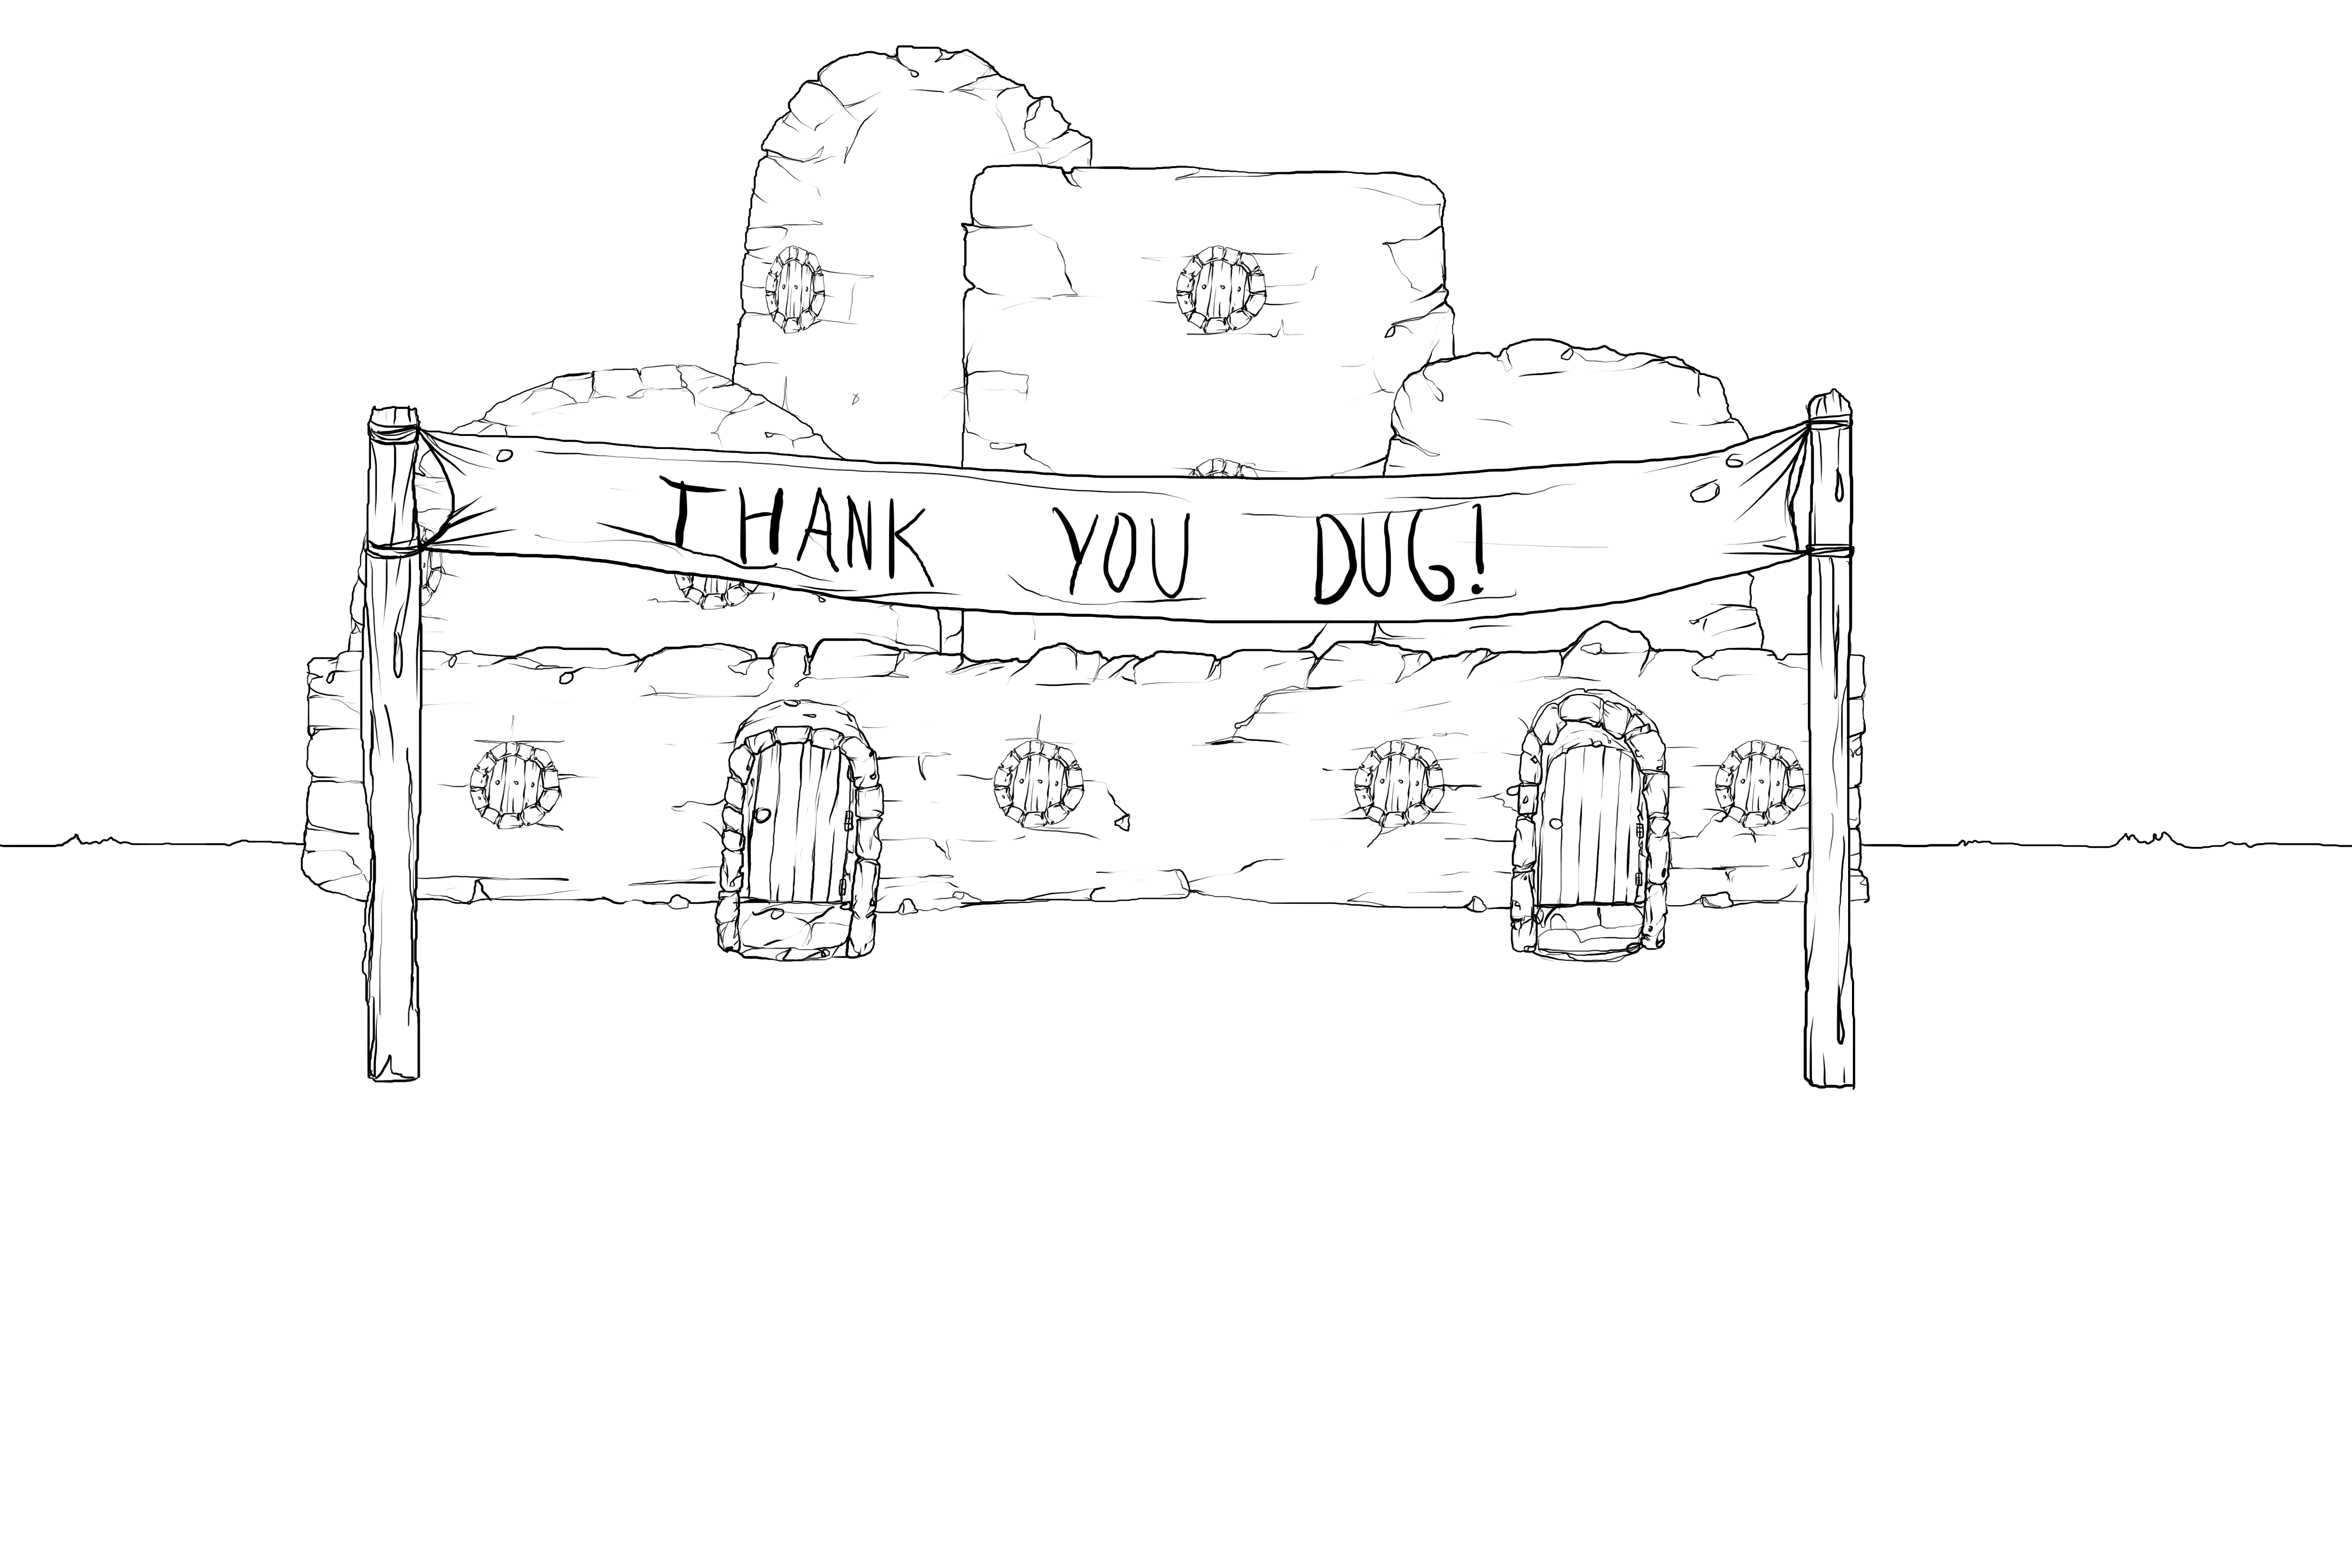 THANK YOU DUG!